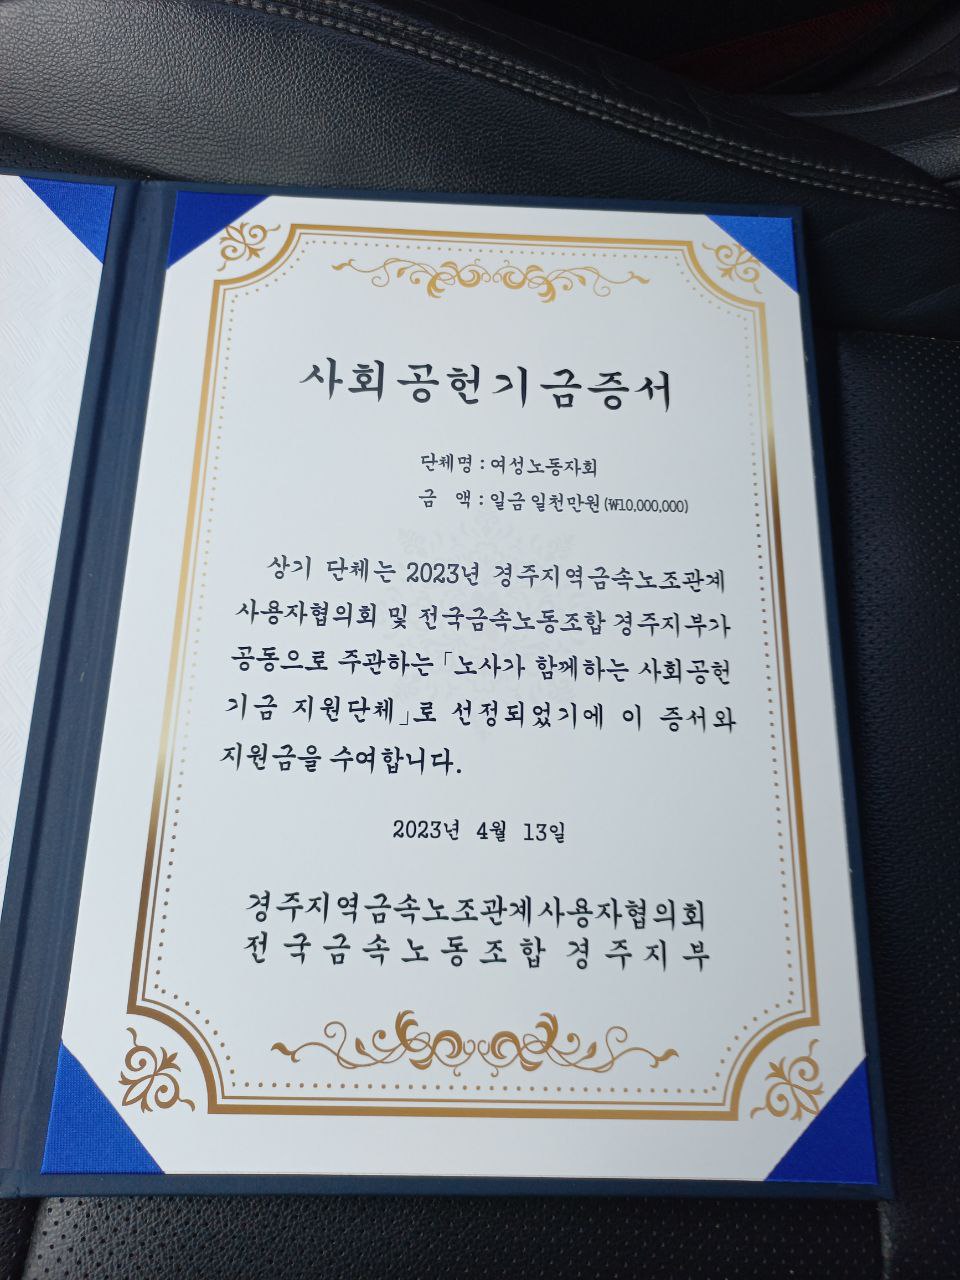 사회공헌기금증서
단체명 : 여성노동자회
금 액 : 일금 일천만원 (₩10,000,000)
상기 단체는 2023년 경주지역금속노조관계
사용자협의회 및 전국금속노동조합 경주지부가
공동으로 주관하는 「노사가 함께하는 사회공헌
기금 지원단체」로 선정되었기에 이 증서와
지원금을 수여합니다.
2023년 4월 13일
경주지역금속노조관계사용자협의회
전국금속노동조합 경주지부